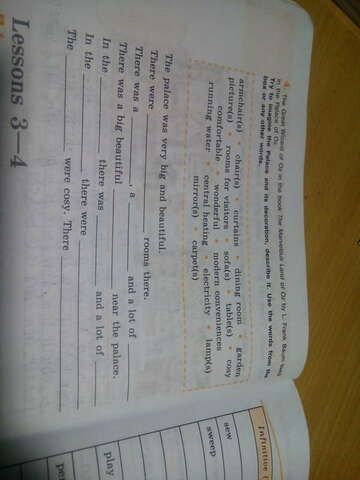 4. The Great Wizard of Oz in the book The Marvellous Land of Oz by L. Frank Baum
in the Palace of Oz.
Try to imagine the Palace and its decoration, describe it. Use the words from the
box or any other words.
armchair(s) • chair(s) • curtains • dining room • garden
picture(s) • rooms for visitors • sofa(s) • table(s) • cosy
comfortable • wonderful • modern conveniences
running water • central heating • electricity • lamp(s)
mirror(s) • carpet(s)
The palace was very big and beautiful.
There were ______ rooms there.
There was a ______, a ______ and a lot of ______
There was a big beautiful ______ near the palace.
In the ______ there was ______ and a lot of ______
In the ______ there were ______
The ______ were cosy. There ______
Lessons 3—4
Infinitive (
sew
sweep
play